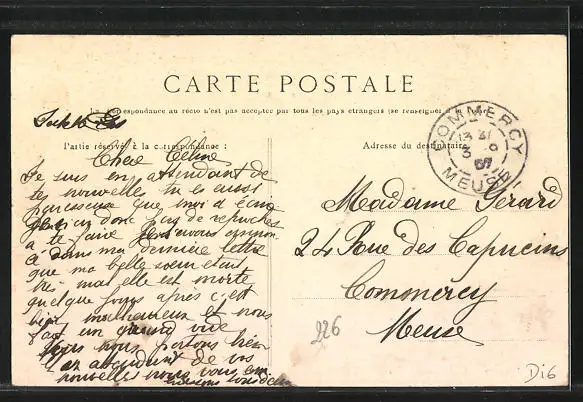 CARTE POSTALE
La correspondance au recto n'est pas acceptée par tous les pays étrangers (se renseigner à la
Partie réservée à la correspondance :
Adresse du destinataire
COMMERCY
13 31
3 9
MEUSE
Chère Céline
Je suis en attendant de
tes nouvelles tu es aussi
paresseuse que moi a
donc pas de reproches
a te faire
dans ma dernière lettre
que ma belle soeur etait
mal elle est morte
quelque jours après c'est
bien malheureux et nous
fait un grand vide
nous portons bien
en attendant de vos
nouvelles nous vous
Madame Gérard
24 Rue des Capucins
Commercy
Meuse
226
Di6